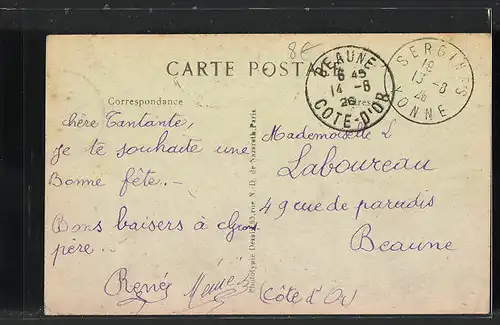 8€
CARTE POSTALE
BEAUNE
6 45
14 -8
26
COTE-D'OR
SERGINES
18
13 -8
26
YONNE
Correspondance
chère Tantante,
je te souhaite une
Bonne fête.-
Bons baisers à Grand
père.-
René Mémé
Phototypie Desaix 63, rue N.-D. de Nazareth, Paris
Mademoiselle L
Laboureau
49 rue de paradis
Beaune
Côte d'Or